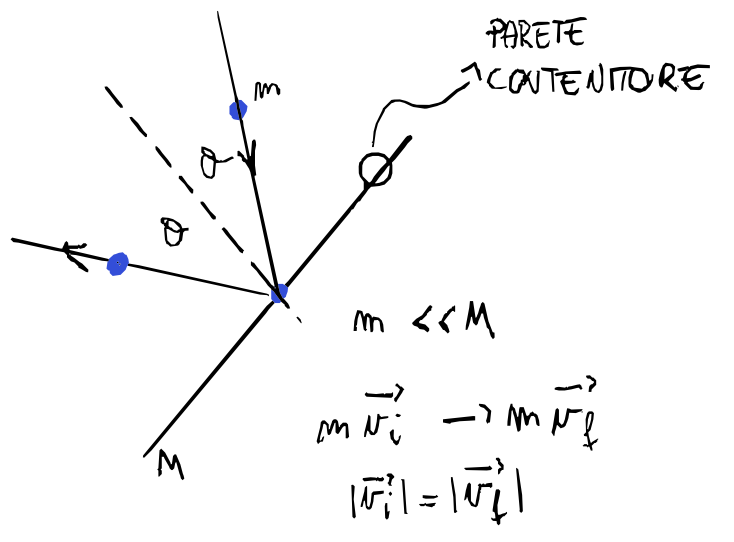 PARETE
CONTENITORE
m
θ
θ
m << M
m v⃗i → m v⃗f
|v⃗i| = |v⃗f|
M